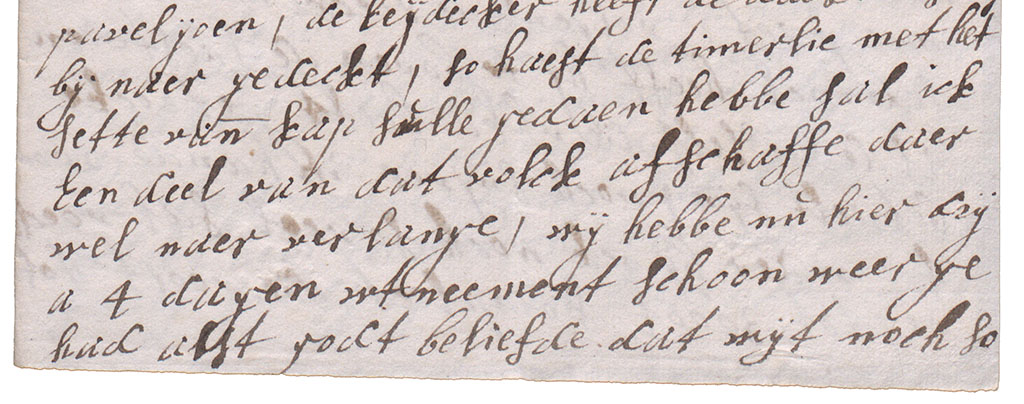 paveljoen, de leijdecker heeft de
bij naer gedeckt, so haest de timerlie met het
sette van kap sulle gedaen hebbe sal ick
Een deel van dat volck afschaffe daer
wel naer verlange, wij hebbe nu hier drij
a 4 dagen wtneement schoon weer ge
had alst godt beliefde dat wijt noch so